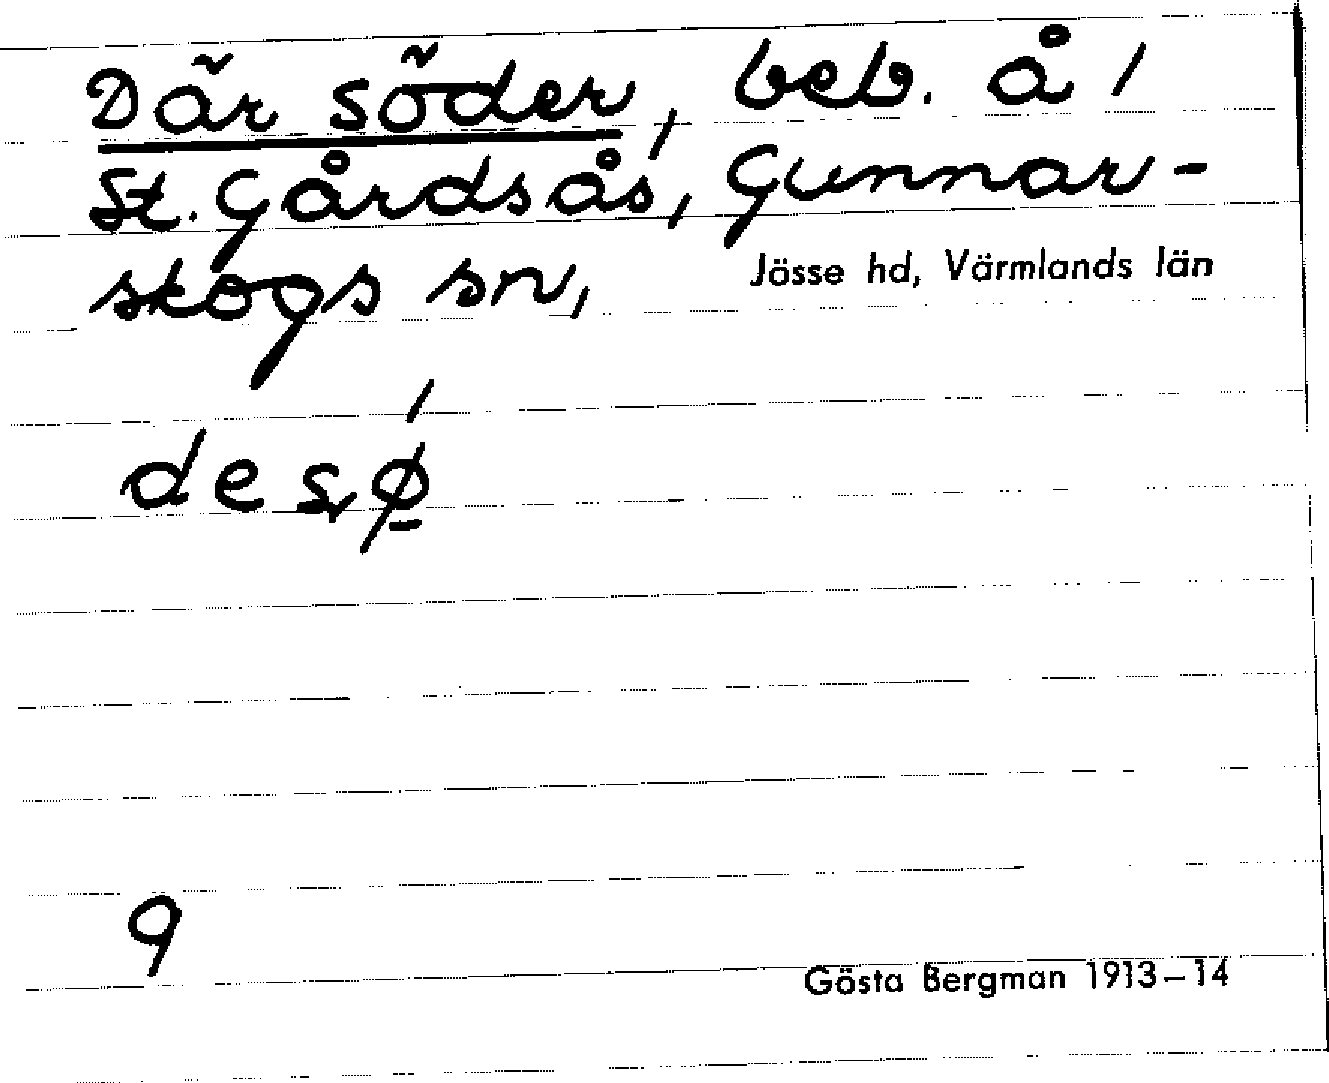 Där söder, beb. å /
St. Gårdsås, Gunnar-
skogs sn, Jösse hd, Värmlands län
9
Gösta Bergman 1913–14